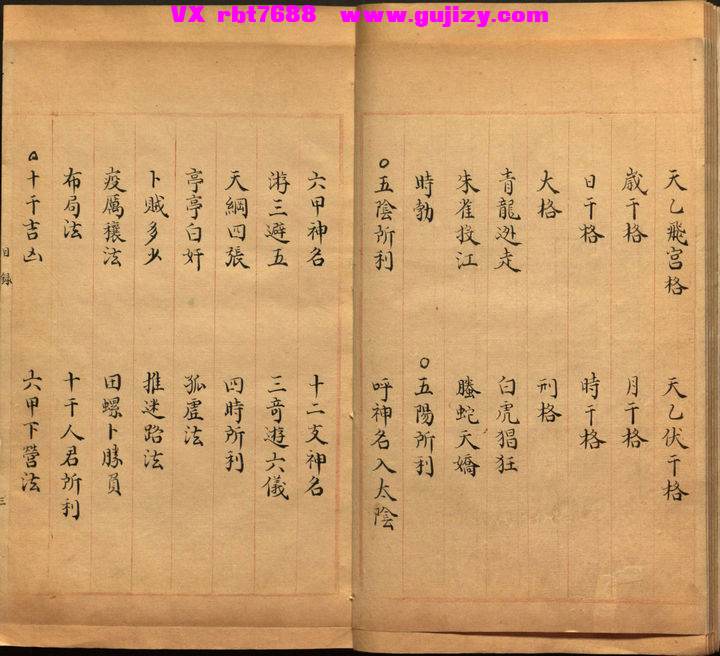 VX rbt7688 www.gujizy.com
天乙飛宮格 天乙伏干格
歲干格 月干格
日干格 時干格
大格 刑格
青龍迯走 白虎猖狂
朱雀投江 螣蛇天嬌
時勃 ○五陽所利
○五陰所利 呼神名入太陰
六甲神名 十二支神名
游三避五 三竒遊六儀
天綱四張 四時所利
亭亭白奸 孤虛法
卜賊多少 推迷路法
疫厲穰法 田螺卜勝負
布局法 十干人君所利
○十干吉凶 六甲下營法
目錄 三